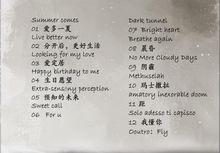 Summer comes
01 爱多一夏
Live better now
02 分开后，更好生活
Looking for my love
03 爱定居
Happy birthday to me
04 生日愿望
Extra-sensory perception
05 预知的未来
Sweet call
06 For u
Dark tunnel
07 Bright heart
Breathe again
08
No More Cloudy Days
09 阴霾
Methuselah
10 玛士撒拉
amatory inexorable doom
11 距
Solo adesso ti capisco
12 我懂你
Ooutro: Fly